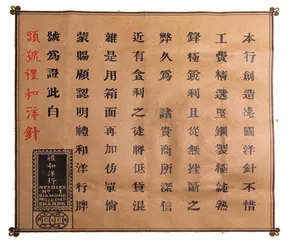 本行創造德國洋針不惜
工費精選堅鋼製極純熟
鋒極銳利且從無挫鏽之
弊久爲 諸貴商所深信
近有貪利之徒將低貨混
雜是用箱面再加仿單倘
蒙賜顧認明禮和洋行牌
號爲證此白
頭號禮和洋針
禮和洋行
NEEDLES
DIAMOND
DRILLED EYED
SHARPS